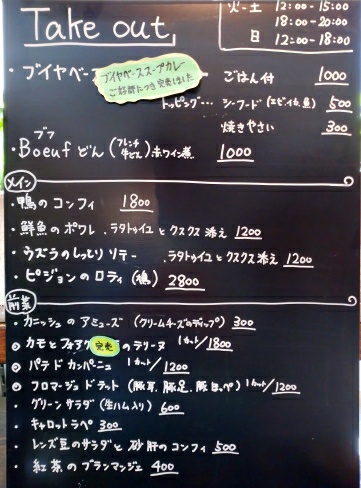 Take out
火-土 12:00-15:00
18:00-20:00
日 12:00-18:00
・ブイヤベース
ブイヤベーススープカレー
ご好評につき完売しました
ごはん付 1000
トッピング… シーフード(エビイカ魚) 500
焼きやさい 300
ブフ
・Boeufどん(フレンチ牛どん)赤ワイン煮 1000
メイン
・鴨のコンフィ 1800
・鮮魚のポワレ.ラタトゥイユとクスクス添え 1200
・ウズラのしっとりソテー.ラタトゥイユとクスクス添え 1200
・ピジョンのロティ(鳩) 2800
前菜
・カニッシュのアミューズ(クリームチーズのディップ) 300
・カモとフォアグラ 完売 のテリーヌ 1カット/1800
・パテドカンパーニュ 1カット/1200
・フロマージュドテット(豚耳、豚足、豚ほっぺ) 1カット/1200
・グリーンサラダ(生ハム入り) 600
・キャロットラペ 300
・レンズ豆のサラダと砂肝のコンフィ 500
・紅茶のブランマンジェ 400